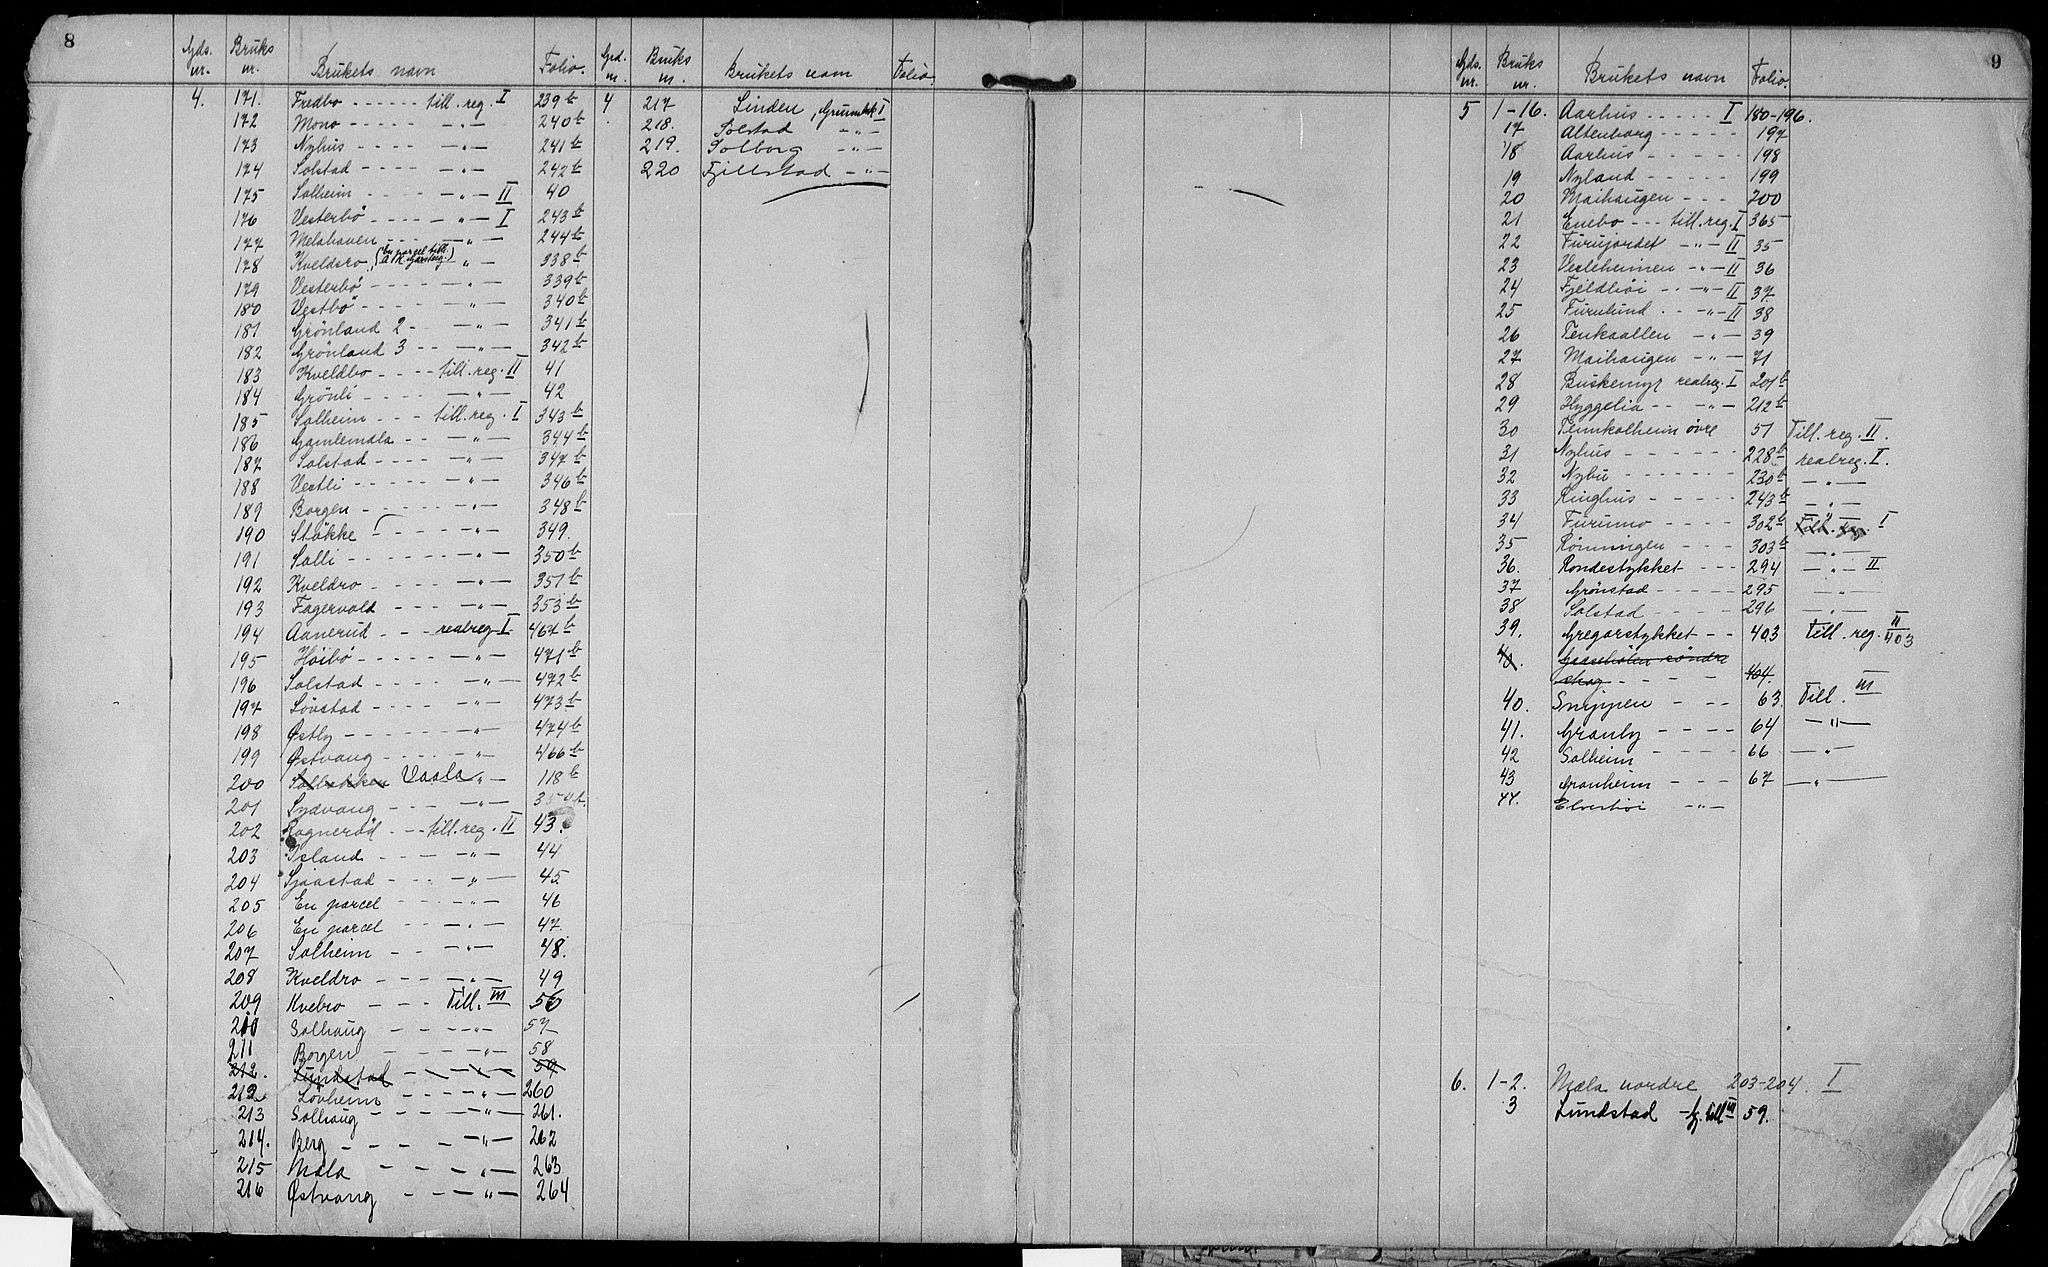 8
Gds. nr. Bruks nr. Brukets navn Folio.
4. 171. Fredbo - - - - - till. reg. I 239 b
172 Mono - - - - - - " - 240 b
173 Nyhus - - - - - " - 241 b
174 Solstad - - - - - " - 242 b
175 Solheim - - - - - " - II 40
176 Vesterbö - - - - - " - I 243 b
177 Melahaven - - - - " - 244 b
178 Kveldsro (En parcel till. ) - " - 338 b
179 Vesterbö - - - - - " - 339 b
180 Vestbö - - - - - " - 340 b
181 Grönland 2 - - " - 341 b
182 Grönland 3 - - - " - 342 b
183 Kveldbo - - - - till. reg. II 41
184 Grönli - - - - - " - 42
185 Solheim - - - till. reg. I 343 b
186 Gamlemala - - - " - 344 b
187 Solstad - - - - - " - 347 b
188 Vestli - - - - - " - 346 b
189 Borgen - - - - - " - 348 b
190 Stökke - - " - 349.
191 Solli - - - - - " - 350 b
192 Kveldro - - - - - " - 351 b
193 Fagervold - - - - " - 353 b
194 Aanerud - - - realreg I 467 b
195 Höibö - - - - - " - 471 b
196 Solstad - - - - - " - 472 b
197 Lövstad - - - - - " - 473 b
198 Østby - - - - - " - 474 b
199 Østvang - - - - - " - 466 b
200 Solbakken Vaala " - 118 b
201 Sydvang - - - - " -
202 Ragneröd - - till. reg. II 43.
203 Island - - - - " - 44
204 Sjaastad - - - - " - 45
205 En parcel - - - " - 46
206 En parcel - - - " - 47.
207 Solheim - - - " - 48.
208 Kveldro - - - - " - 49
209 Kvebro - - - Till. III 56
210 Solhaug - - - - - " - 57
211 Borgen - - - - - " - 58
212. Lundstad - - - - - 59
212 Lövheim - - - - " - 260
213 Solhaug - - - - - " - 261.
214. Berg - - - - - " - 262
215 Mæla - - - - " - 263
216 Østvang - - - - " - 264
Grd. nr. Bruks nr. Brukets navn Folio.
4 217 Linden, I
218. Solstad - " -
219. Solborg - " -
220 Fjellstad - " -
9
Gds. nr. Bruks nr. Brukets navn Folio.
5 1-16. Aarhus - - - - - I 180-196.
17 Altenborg - - - - - 197
18 Aarhus - - - - - 198
19 Nyland - - - - - 199
20 Maihaugen - - - 200
21 Enebo - - - till. reg. I 365
22 Furujordet - " - II 35
23 Vesleheimen - " - II 36
24 Fjeldhöi - - " - II 37
25 Furulund - - " - II 38
26 Tenkaallen - " - 39
27 Maihaugen - " - 71
28 Buskemyr realreg. I 201 b
29 Hyggelia - - - " - 212 b
30 Tennkolheim övre 51 Till. reg. II.
31 Nyhus - - - - - - 228 b realreg. I.
32 Nybu - - - - - - 230 b - " -
33 Ringhus - - - - - 243 b - " -
34 Furumo - - - - 302 b Till. reg. I
35 Rönningen - - - 303 b - " -
36. Rondestykket - - - 294 - " - II
37 Grönstad - - - - 295 - " -
38 Solstad - - - - - 296 - " -
39. Gregarstykket - - 403 Till. reg. II 403
40. söndre
skog - - - - - 404.
40. Snippen - - - 63. Till. III
41. Granly - - - - 64 - " -
42 Solheim 66 - " -
43 Granheim - - - 67 - " -
44. Elverhöi - " -
6. 1-2. Mæla nordre 203-204. I
3 Lundstad till III 59.